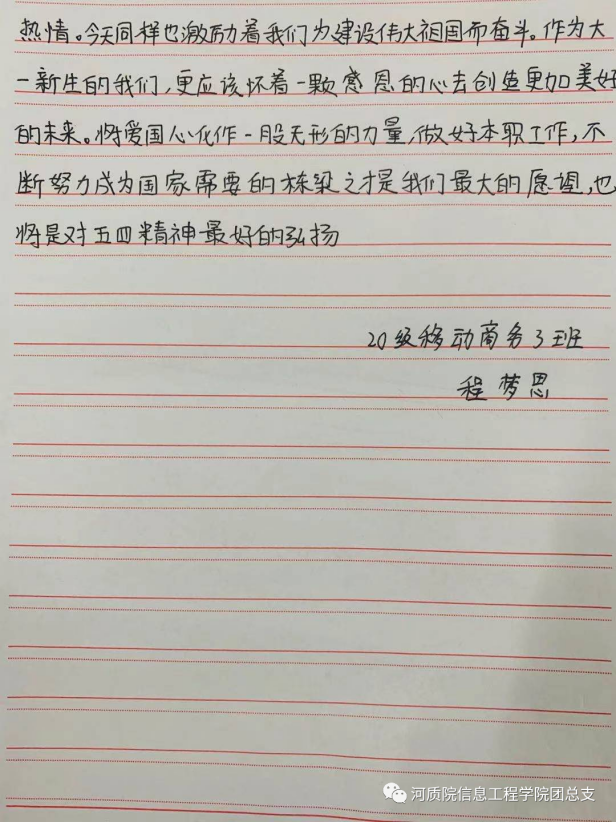 热情。今天同样也激励着我们为建设伟大祖国而奋斗。作为大
一新生的我们,更应该怀着一颗感恩的心去创造更加美好
的未来。将爱国心化作一股无形的力量,做好本职工作,不
断努力成为国家需要的栋梁之才是我们最大的愿望,也
将是对五四精神最好的弘扬
20级移动商务3班
程梦恩
河质院信息工程学院团总支